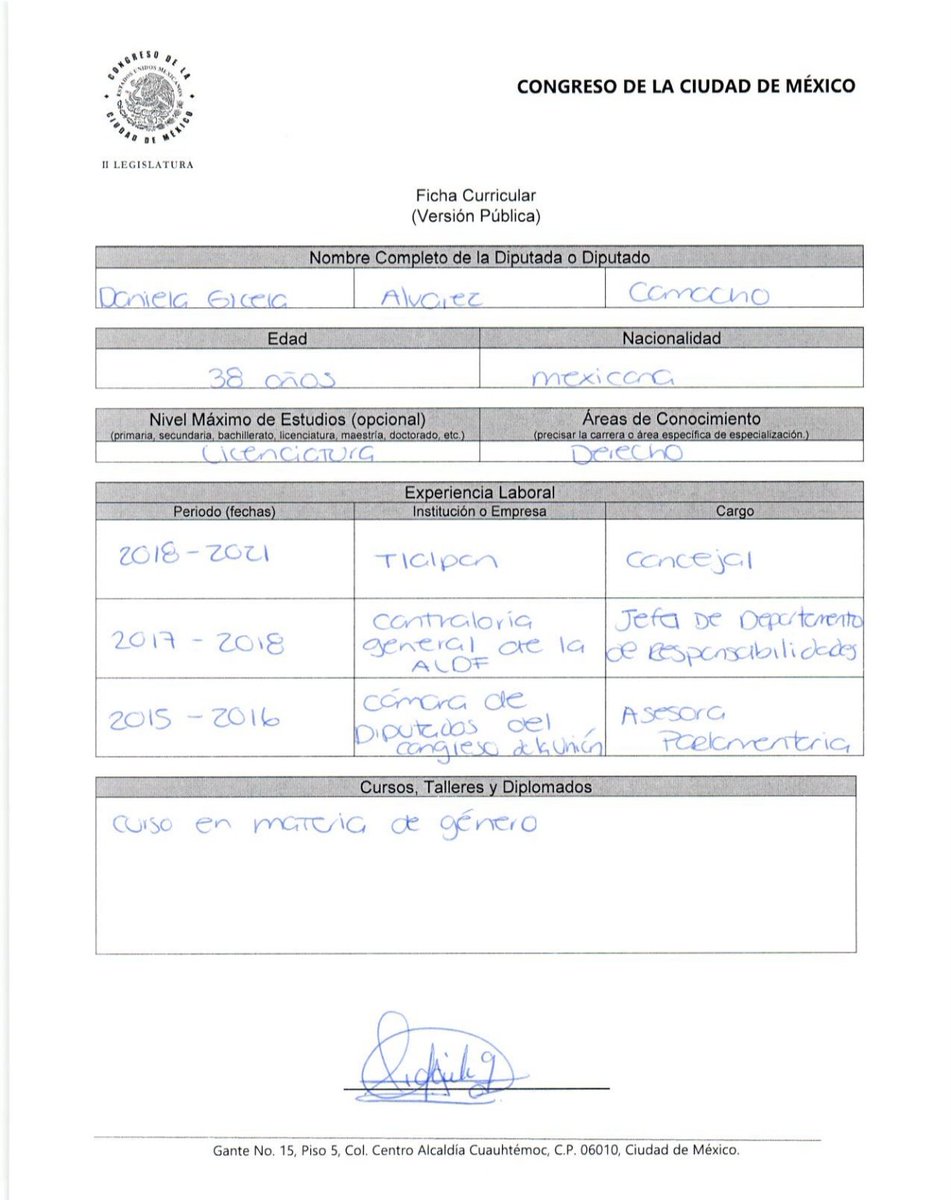 CONGRESO DE LA
ESTADOS UNIDOS MEXICANOS
CIUDAD DE MÉXICO
II LEGISLATURA
CONGRESO DE LA CIUDAD DE MÉXICO
Ficha Curricular
(Versión Pública)
Nombre Completo de la Diputada o Diputado
Daniela Gicela Alvarez Camacho
Edad Nacionalidad
38 años mexicana
Nivel Máximo de Estudios (opcional) Áreas de Conocimiento
(primaria, secundaria, bachillerato, licenciatura, maestría, doctorado, etc.) (precisar la carrera o área específica de especialización.)
Licenciatura Derecho
Experiencia Laboral
Periodo (fechas) Institución o Empresa Cargo
2018-2021 Tlalpan Concejal
2017 - 2018 Contraloría general de la ALDF Jefa De Departamento de Responsabilidades
2015 - 2016 Cámara de Diputados del congreso de la Unión Asesora Parlamentaria
Cursos, Talleres y Diplomados
curso en materia de género
Gante No. 15, Piso 5, Col. Centro Alcaldía Cuauhtémoc, C.P. 06010, Ciudad de México.